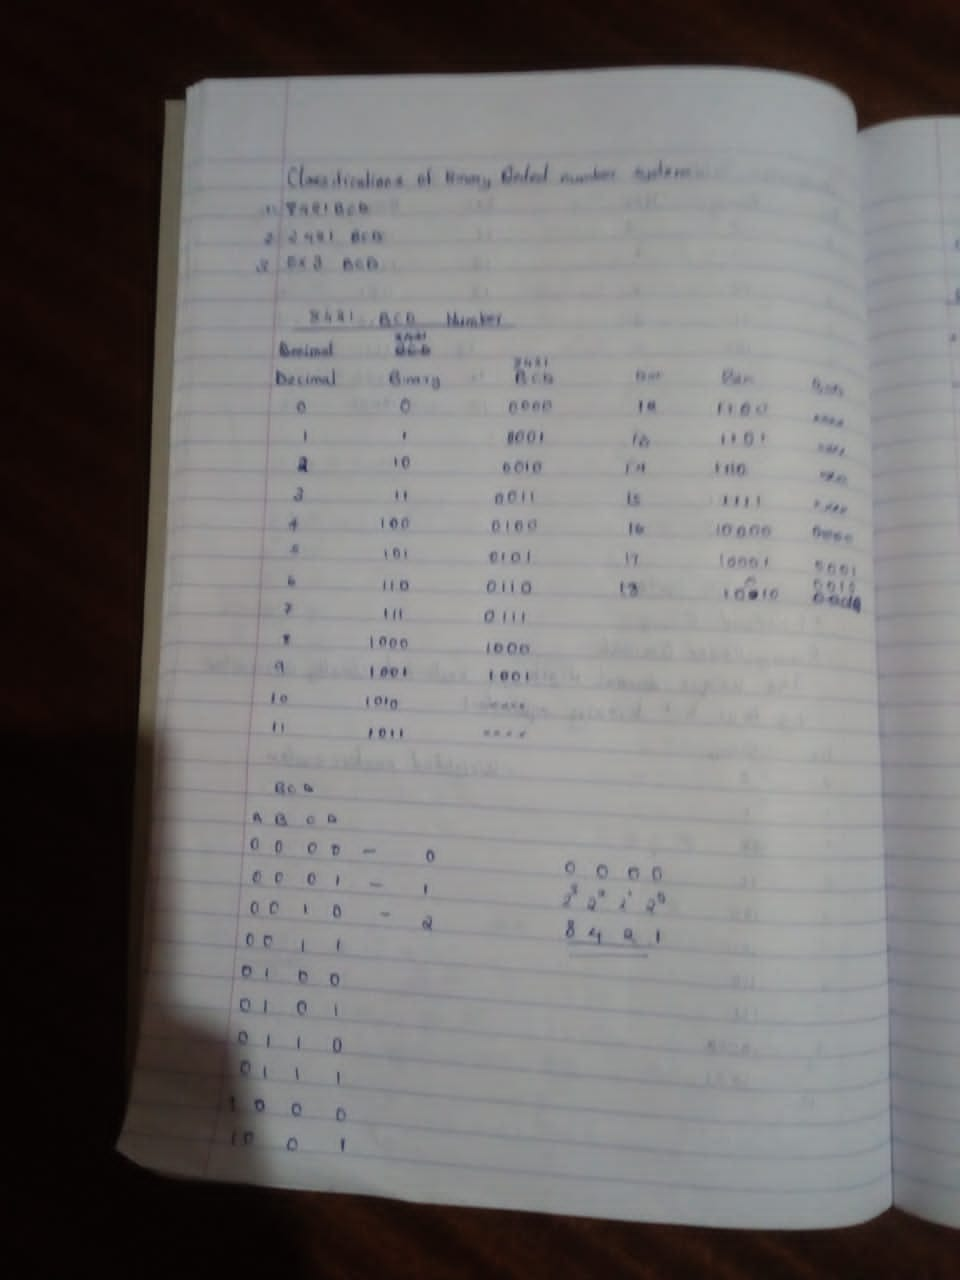 Classifications of Binary Coded number system
1. 8421 BCD
2. 2421 BCD
3. EX3 BCD
8421 BCD Number
Decimal BCD
Decimal Binary 8421 BCD Dec Bin BCD
0 0 0000 12 1100 xxxx
1 1 0001 13 1101 xxxx
2 10 0010 14 1110 xxxx
3 11 0011 15 1111 xxxx
4 100 0100 16 10000 0000
5 101 0101 17 10001 0001
6 110 0110 18 10010 0010
7 111 0111
8 1000 1000
9 1001 1001
10 1010 xxxx
11 1011 xxxx
BCD
A B C D
0 0 0 0 - 0 0 0 0 0
0 0 0 1 - 1 2³ 2² 2¹ 2⁰
0 0 1 0 - 2 8 4 2 1
0 0 1 1
0 1 0 0
0 1 0 1
0 1 1 0
0 1 1 1
1 0 0 0
1 0 0 1